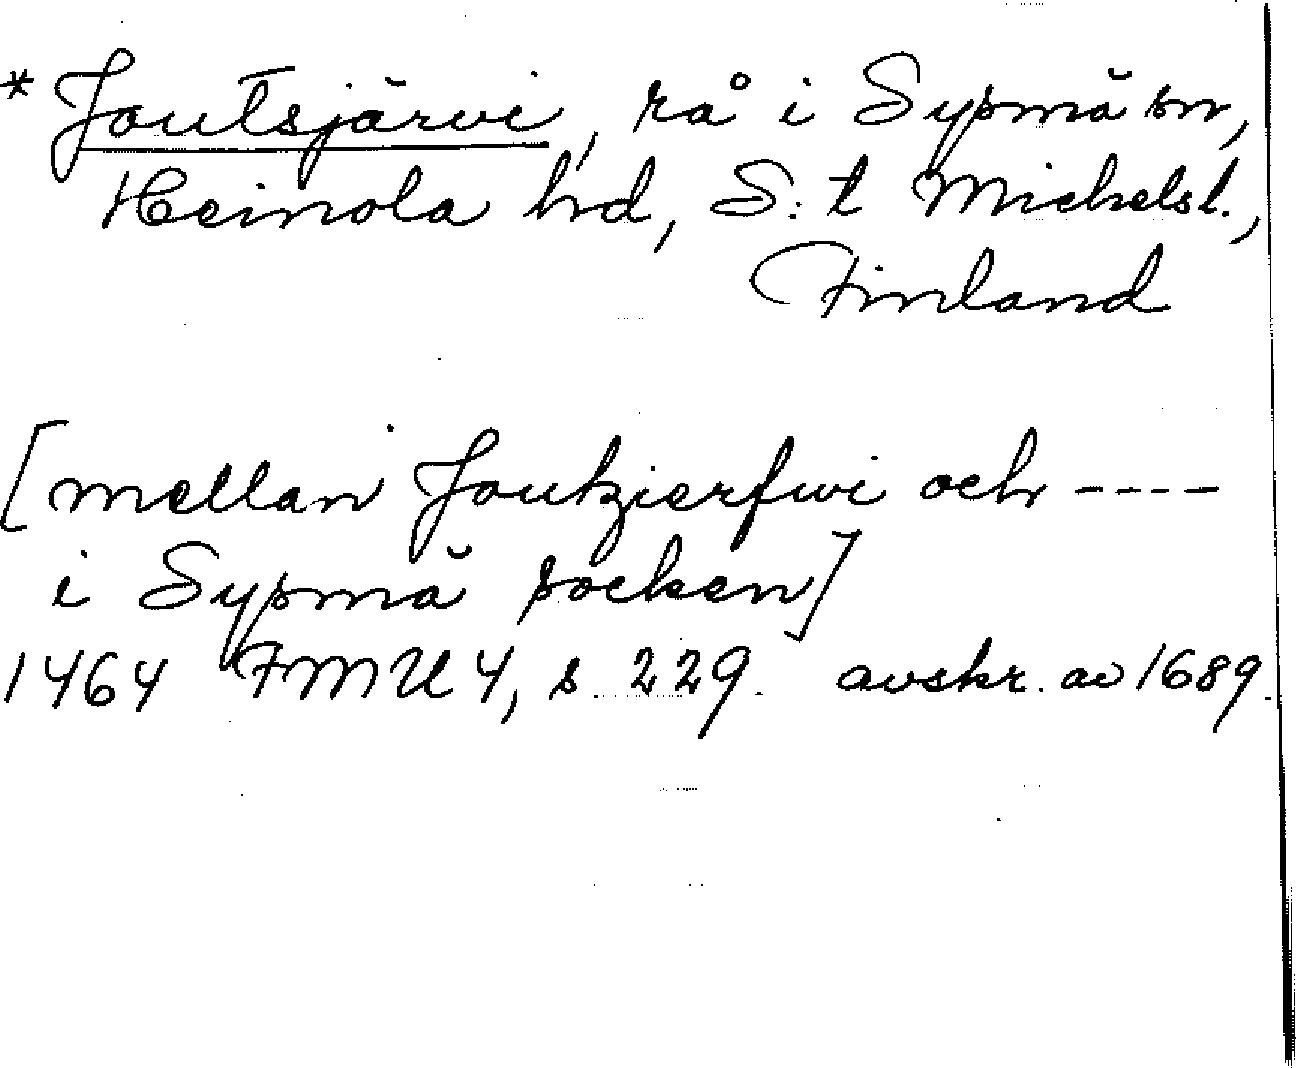 * Joutsjärvi, rå i Sysmä sn,
Heinola hd, S:t Michels l.,
Finland
[mellan Joutzierfwi och ----
i Sysmä socken]
1464 FMU 4, s 229. avskr. av 1689.